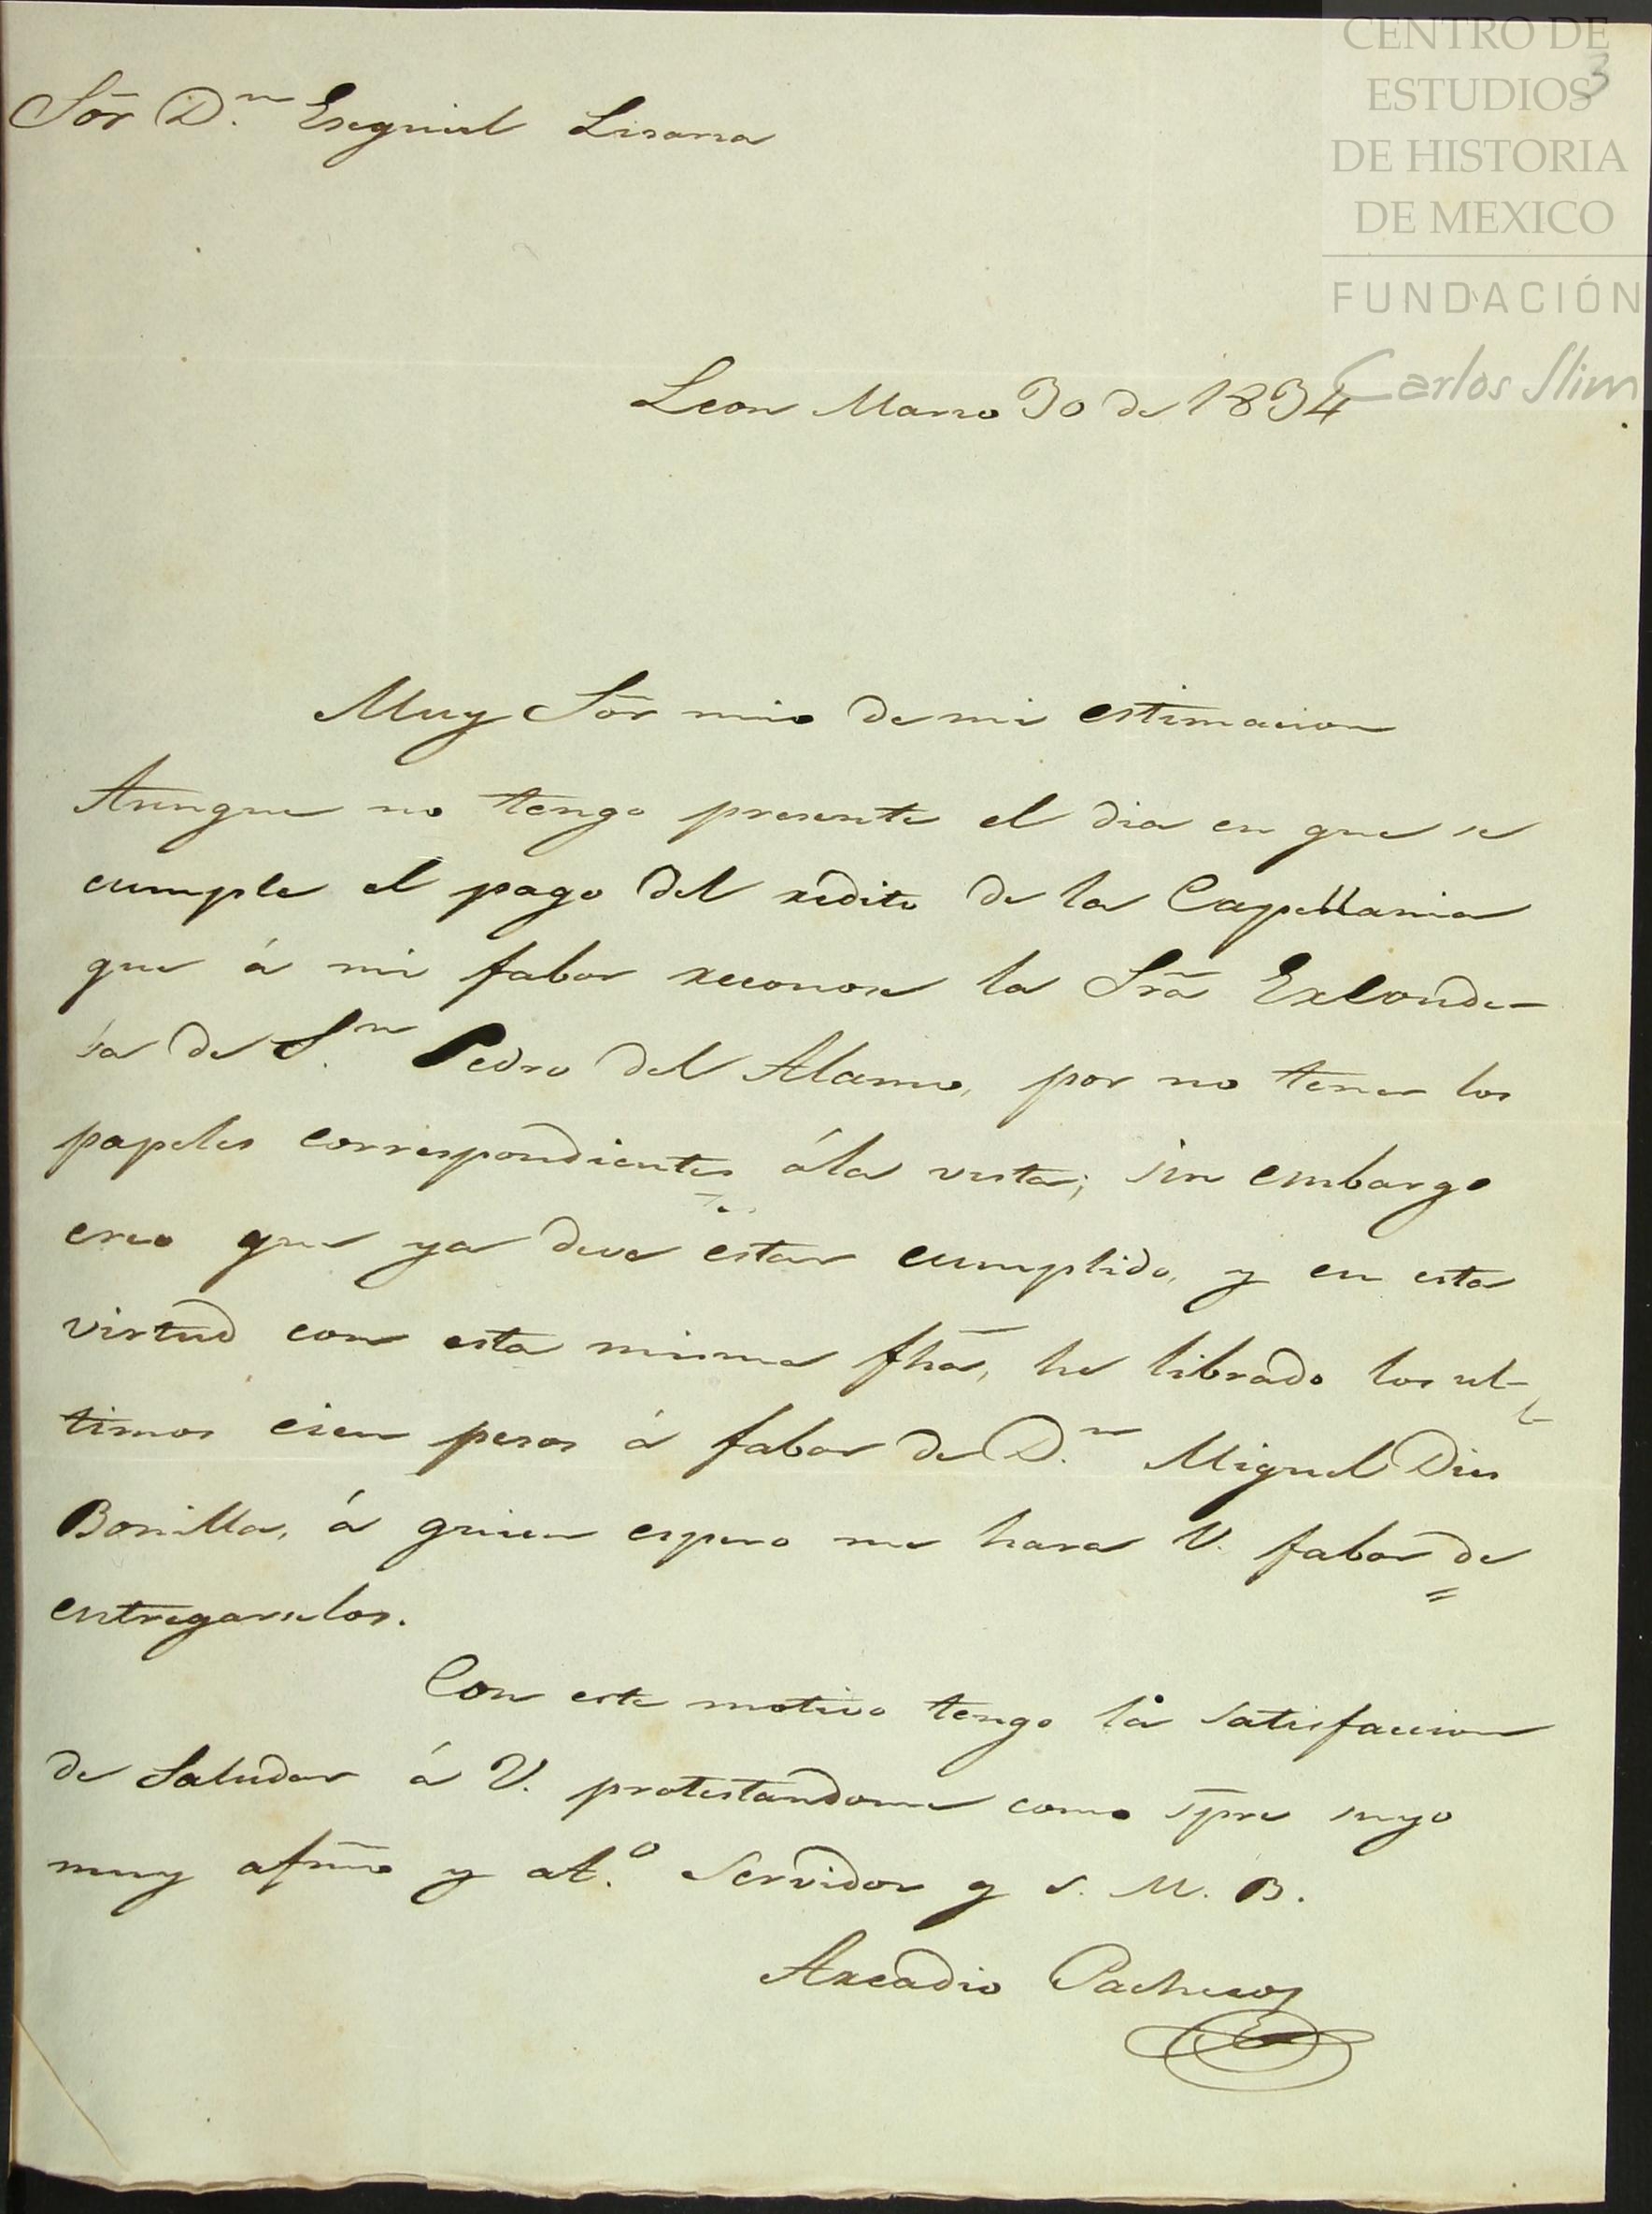 CENTRO DE
ESTUDIOS
DE HISTORIA
DE MEXICO
FUNDACIÓN
Carlos Slim
3
Sõr D.n Esequiel Lisama
Leon Marzo 30 de 1834
Muy Sõr mio de mi estimacion
Aunque no tengo presente el dia en que se
cumple el pago del redito de la Capellania
que á mi fabor reconose la Srã Exconde-
sa de S.n Pedro del Alamo, por no tener los
papeles correspondientes ála vista; sin embargo
creo que ya deve estar cumplido, y en esta
virtud con esta misma fhã, he librado los ul-
timos cien pesos á fabor de D.n Miguel Dies
Bonilla, á quien espero me hara V. fabor de
entregarselos.
Con este motivo tengo la satisfaccion
de Saludar á V. protestandome como sp̃re suyo
muy afm̃o y at.o Servidor q s. M. B.
Arcadio Pacheco